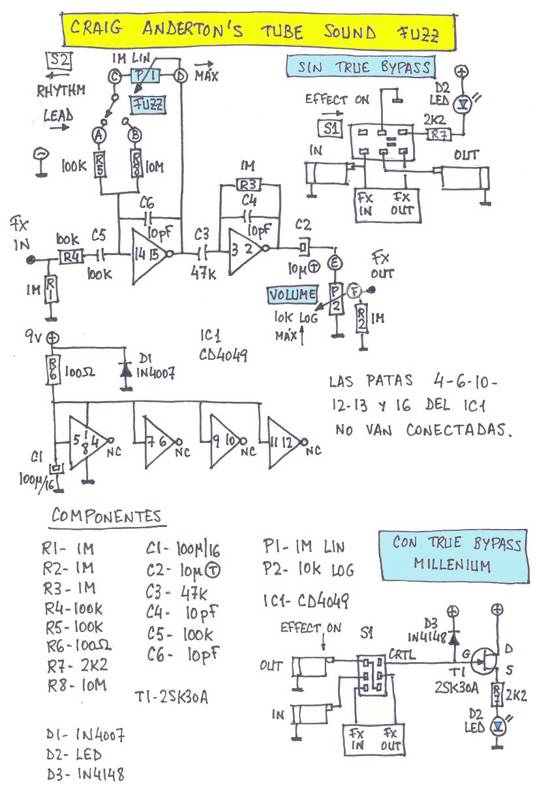 CRAIG ANDERTON'S TUBE SOUND FUZZ
S2
1M LIN
C P/1 D
MÁX
RHYTHM
FUZZ
LEAD
A B
100K R5
R8 10M
C6
10pF
FX IN
100K
R4
C5
100K
14 15
C3
47K
1M
R3
C4
10pF
3 2
C2
10µ T
E
FX OUT
1M R1
VOLUME
P2
F
10K LOG
MÁX
R2 1M
SIN TRUE BYPASS
EFFECT ON
D2
LED
S1
2K2
R7
IN
OUT
FX IN
FX OUT
9V
R6 100Ω
D1
1N4007
IC1
CD4049
LAS PATAS 4-6-10-
12-13 Y 16 DEL IC1
NO VAN CONECTADAS.
C1
100µ/16
5 1 4
8
NC
7 6
NC
9 10
NC
11 12
NC
COMPONENTES
R1- 1M
R2- 1M
R3- 1M
R4-100K
R5-100K
R6-100Ω
R7- 2K2
R8- 10M
C1- 100µ/16
C2- 10µ T
C3- 47K
C4- 10pF
C5- 100K
C6- 10pF
T1-2SK30A
D1- 1N4007
D2- LED
D3- 1N4148
P1- 1M LIN
P2- 10K LOG
IC1- CD4049
CON TRUE BYPASS
MILLENIUM
EFFECT ON
S1
D3
1N4148
OUT
CRTL
G
D
S
T1
2SK30A
IN
R7 2K2
D2
LED
FX IN
FX OUT